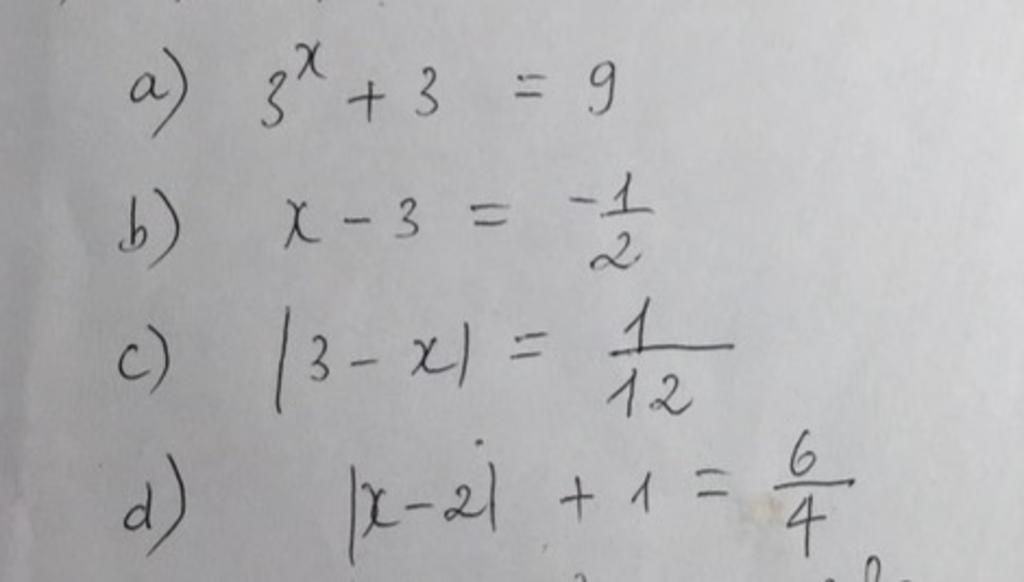 a) 3^x + 3 = 9
b) x - 3 = -1/2
c) |3 - x| = 1/12
d) |x - 2| + 1 = 6/4